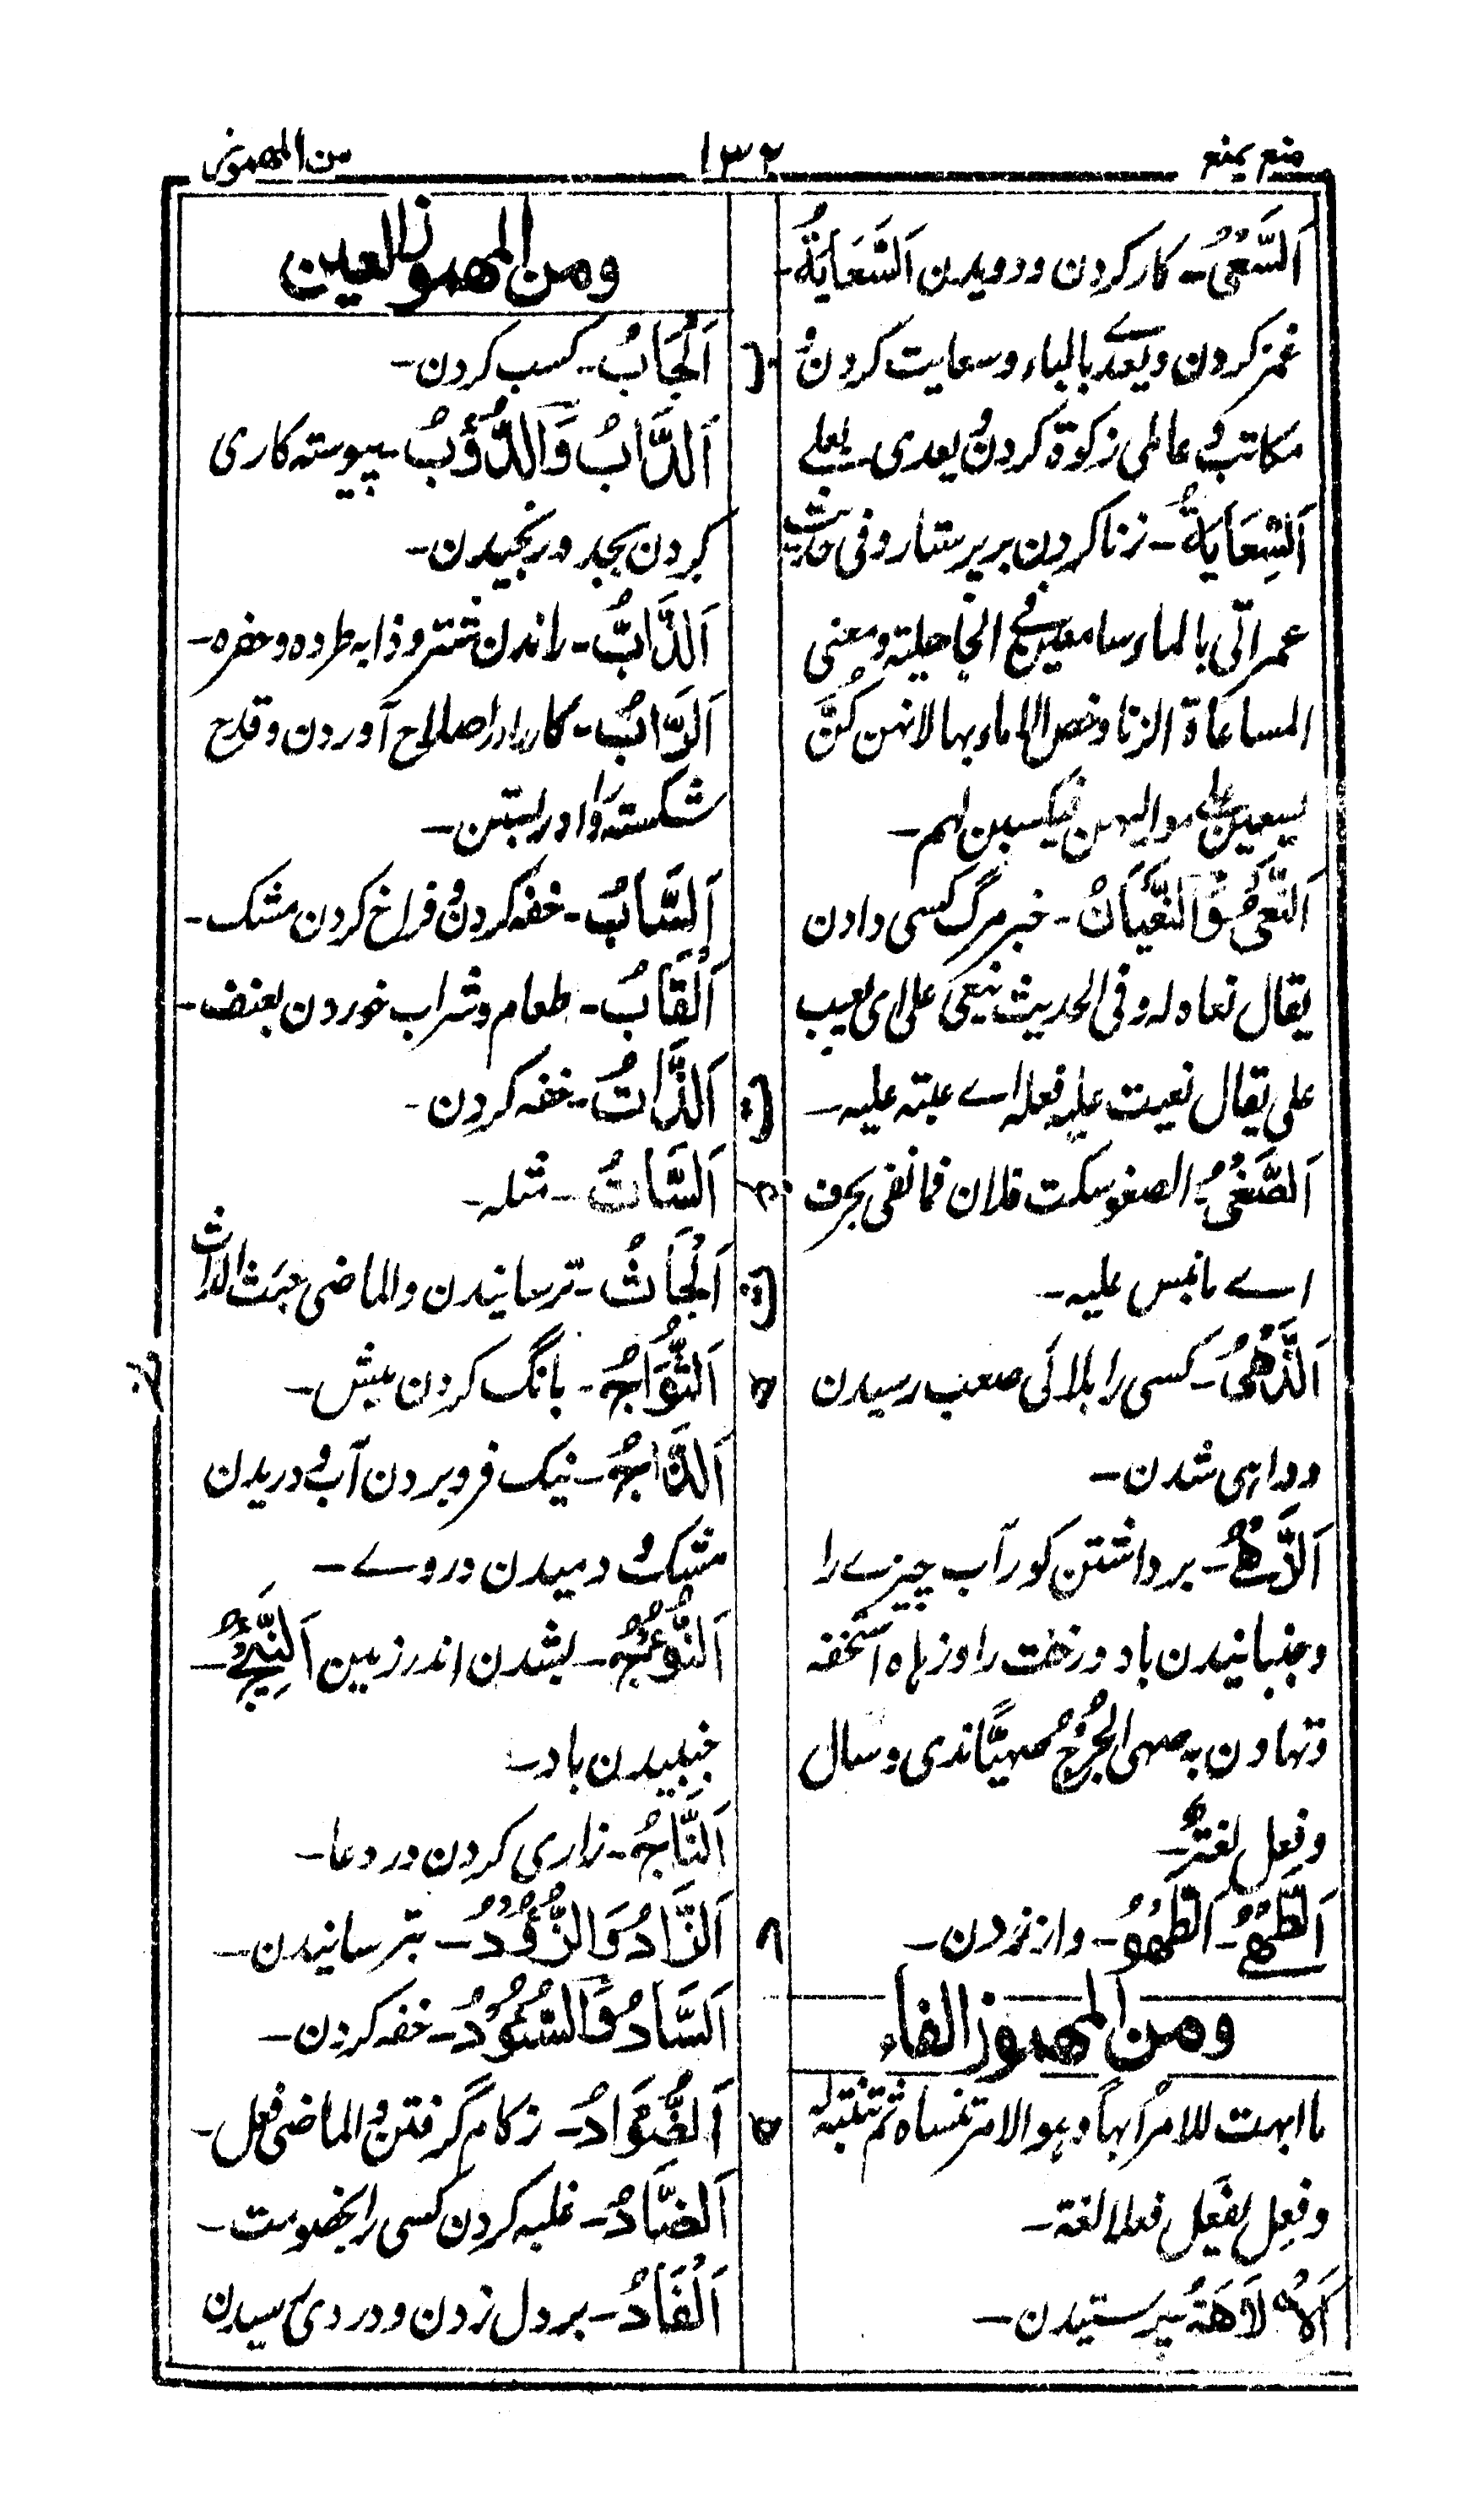 منع یمنع
۱۳۲
من المهموز
اَلسَّعْیُ۔ کار کردن و دویدن اَلسَّعَایَةُ۔
غمز کردن و یعدے بالباء و سعایت کردن
مکاتب و عاملی زکوة کردن و یعدی بعلے
اَلسِّعَایَةُ۔ زنا کردن بر پرستار و فی حدیث
عمر اتی باماء ساعین فی الجاهلیة و معنی
المساعاة الزنا و خص الاماء بها لانهن کُنَّ
یسعین علی موالیهن فیکسبن لهم۔
اَلنَّعْیُ وَالنَّعْیَانُ۔ خبر مرگ کسی دادن
یقال نعاه له و فی الحدیث ینعی علی ای یعیب
علی یقال نعیت علیه فعله اے عبته علیه۔
اَلصَّغْیُ۔ الصغو سکت فلان فما نغی بحرف
اے ما نبس علیه۔
اَلدَّهْیُ۔ کسی را بلائی صعب رسیدن
و داهی شدن۔
اَلزَّهْیُ۔ برداشتن کور آب چیزے را
و جنبانیدن باد درخت را و زهاه استخفه
و تهاون به صهی الجرح صهیًا ندی و سال
و فعِل لغتهٌ۔
اَلطَّهْیُ۔ الطَّهْوُ۔
ومن المهموز الفاء
ما ابهت للامر ابهاً و هو الامر تنساه ثم تنتبه له
و فعِل یفعَل فعلا لغة۔
اَلْاِلَاهَةُ پرستیدن۔
ومن المهموز العین
ب اَلْجَأْبُ۔ کسب کردن۔
اَلدَّأْبُ وَالدُّؤُبُ۔ پیوسته کاری
کردن بجد و رنجیدن۔
اَلذَّأْبُ۔ راندن شتر و ذابه طرده و حقره۔
اَلرَّأْبُ۔ کار را در اصلاح آوردن و قدح
شکسته را در بستن۔
اَلسَّأْبُ۔ خفه کردن و فراخ کردن مشک۔
اَلْقَأْبُ۔ طعام و شراب خوردن بعنف۔
ت اَلذَّأْتُ۔ خفه کردن۔
اَلسَّأْتُ۔ مثله۔
ث اَلْجَأْثُ۔ ترسانیدن و الماضی جئث
ج اَلثُّؤَاجُ۔ بانگ کردن میش۔
اَلذَّأْجُ۔ نیک فرو بردن آب و دریدن
مشک و دمیدن در وے۔
اَلنُّؤُجُ۔ بشدن اندر زمین اَلنَّئِیْجُ۔
جنبیدن باد۔
اَلنَّأْجُ۔ زاری کردن در دعا۔
د اَلزَّأْدُ وَالزُّؤُدُ۔ بترسانیدن۔
اَلسَّأْدُ وَالسُّؤُدُ۔ خفه کردن۔
اَلضُّؤَادُ۔ زکام گرفتن و الماضی فعل۔
اَلضَّأْدُ۔ غلبه کردن کسی را بخصومت۔
اَلْفَأْدُ۔ بر دل زدن و دردی رسیدن